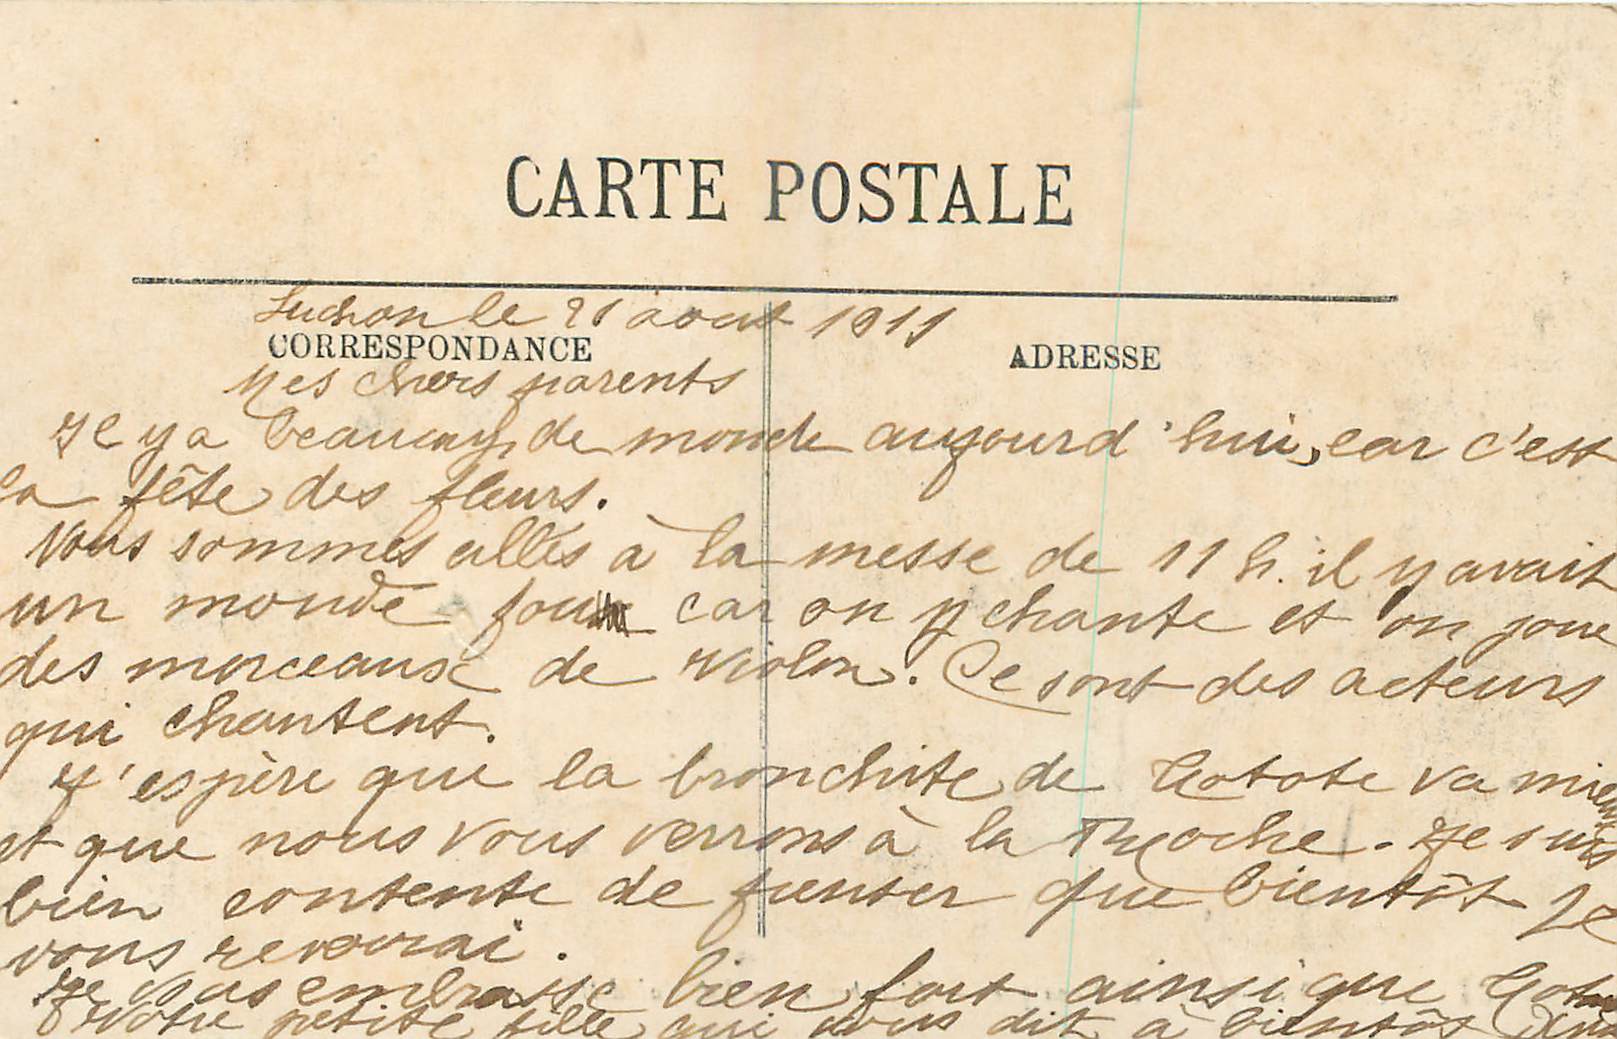 CARTE POSTALE
Luchon le 21 aout 1911
CORRESPONDANCE
ADRESSE
Mes chers parents
Il y a beaucoup de monde aujourd'hui, car c'est
la fête des fleurs.
Nous sommes allés à la messe de 11 h. il y avait
un monde fou car on y chante et on joue
des morceaux de violon. Ce sont des acteurs
qui chantent.
J'espère que la bronchite de Totote va mieux
et que nous vous verrons à la. Je suis
bien contente de penser que bientôt je
vous revoirai.
Je vous embrasse bien fort ainsi que
Votre petite fille qui vous dit à bientôt